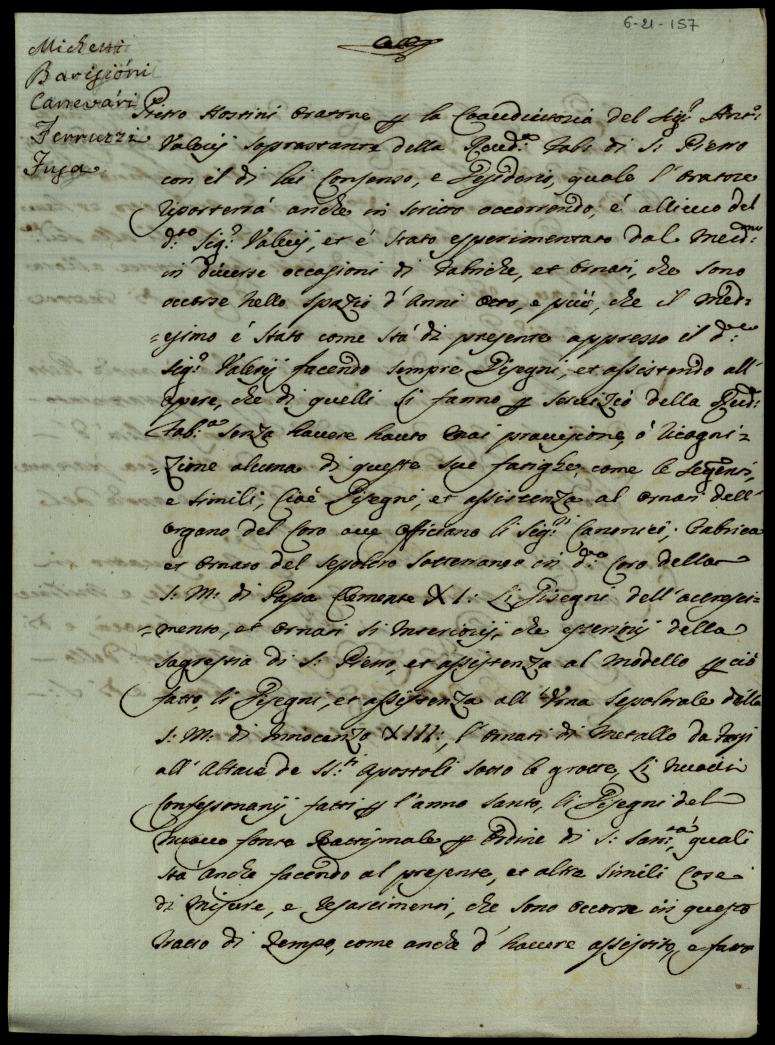 6-21-157
Michetti
Barigióni
Canevári
Ferruzzi
Fuga
Pietro Hostini Oratore p la Coaudiutoria del Sig.r Ant.o
Valerij soprastante della Reud.a Fab.a di S. Pietro
con il di lui Consenso, e Desiderio, quale l'Oratore
riporterrá anche in scritto occorrendo, é allievo del
d.to Sig.r Valerij, et é stato esperimentato dal Med.mo
in diverse occasioni di fabriche, et Ornati, che sono
occorse nello spazio d'Anni Otto, e più, che il Med-
-esimo é stato come stá di presente appresso il d.o
Sig.r Valerij facendo sempre Disegni, et assistendo all'
opere, che di quelli si fanno p servizio della Reud.a
Fab.a senza havere hauto mai provisione, ó ricogni-
-zione alcuna di queste sue fatighe, come le seguenti,
e simili, Cioé Disegni, et assistenza al Ornati dell'
Organo del Coro ove Officiano li Sig.ri Canonici; Fabrica
et Ornato del Sepolcro sotterraneo in d.o Coro della
S: M: di Papa Clemente XI: Li Disegni dell'accresci-
-mento, et Ornati si Interiorij, che esteriorij della
Sagrestia di S: Pietro, et assistenza al Modello p ció
fatto, li Disegni, et assistenza all'Urna Sepolcrale della
S: M: di Innocenzo XIII:, l'Ornati di Metallo da farsi
all'Altare de SS.ti Apostoli sotto le grotte, Li nuovi
Confessionarij fatti p l'anno Santo, li Disegni del
nuovo fonte Battesimale p Ordine di S: San.tá, quali
stá anche facendo al presente, et altre simili Cose
di Misure, e resarcimenti, che sono occorse in questo
tratto di tempo, come anche d'havere assistito, e fatto